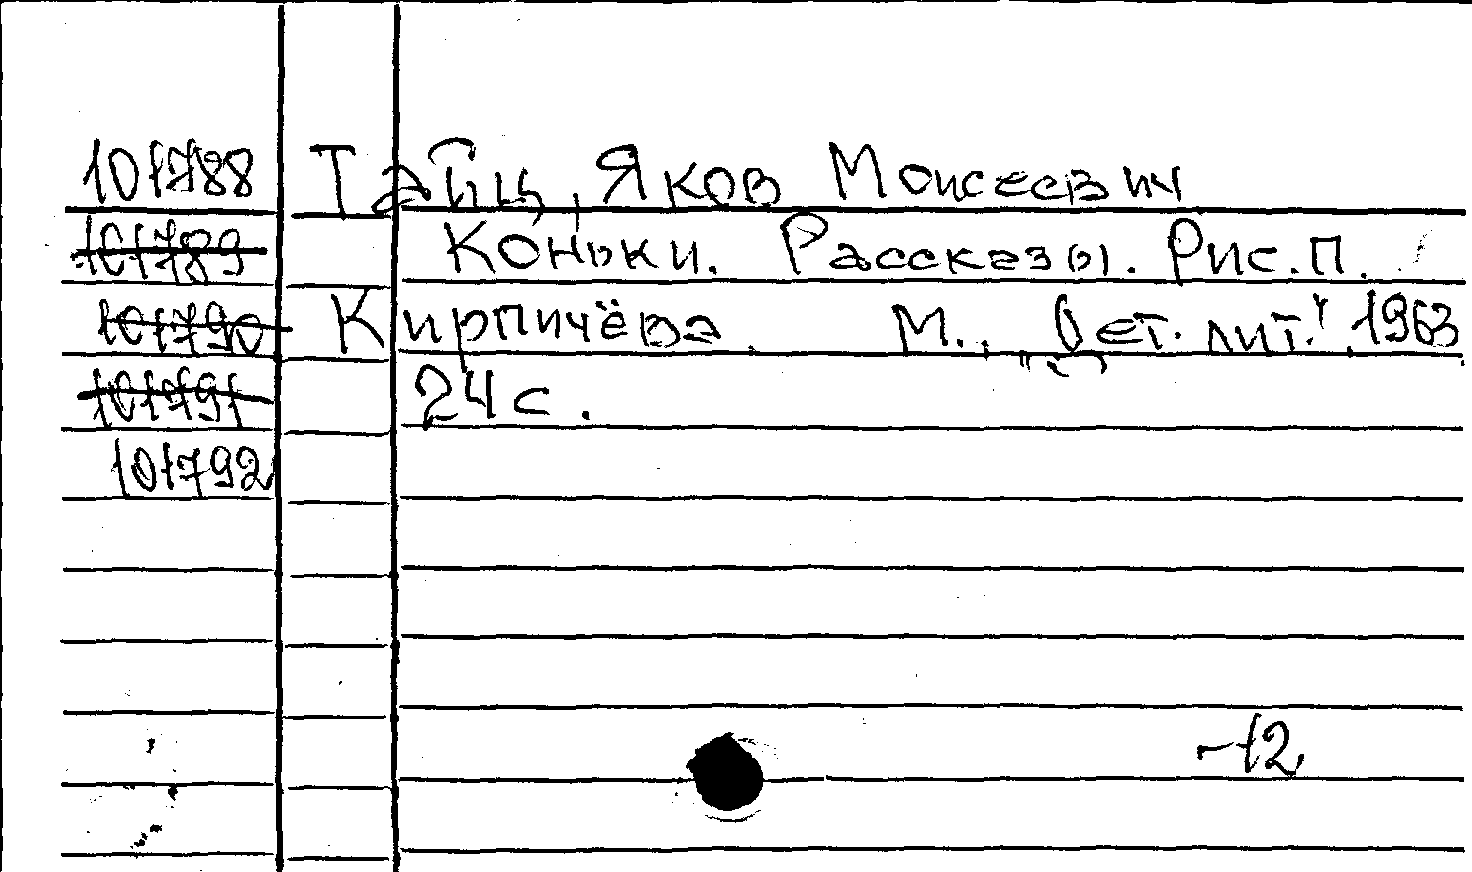 101788 Тайц, Яков Моисеевич
101789 Коньки. Рассказы. Рис. П.
101790 Кирпичёва. М., „Дет. лит.", 1963.
101791 24 с.
101792
-12